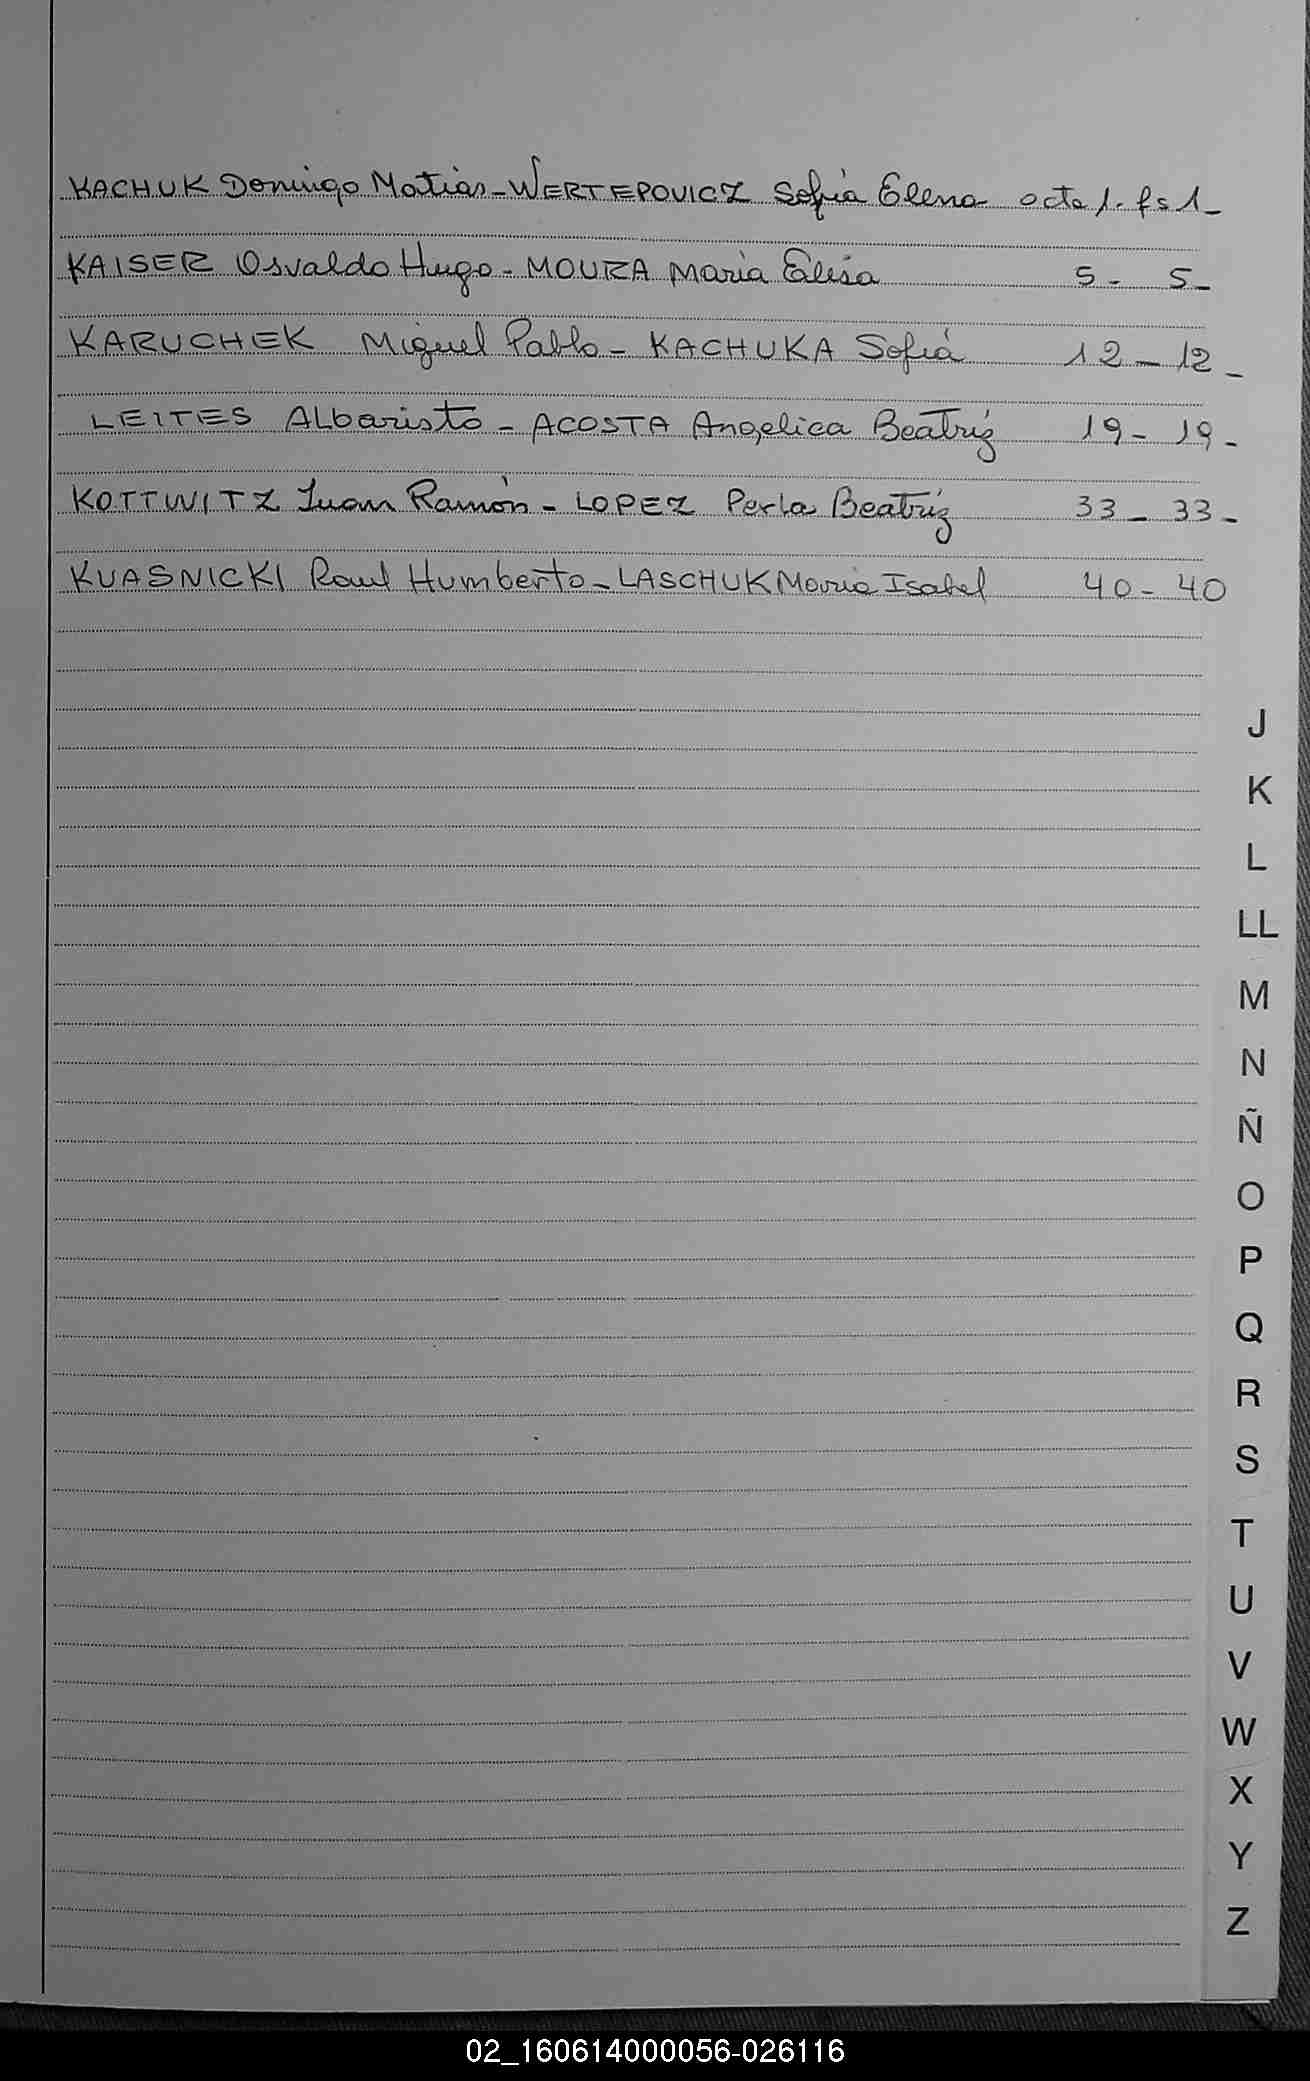 KACHUK Domingo Matias - WERTEPOVICZ Sofiá Elena acta 1. fs 1 -
KAISER Osvaldo Hugo - MOURA Maria Elisa 5 - 5 -
KARUCHEK Miguel Pablo - KACHUKA Sofiá 12 - 12 -
LEITES Albaristo - ACOSTA Angelica Beatriz 19 - 19 -
KOTTWITZ Juan Ramón - LOPEZ Perla Beatriz 33 - 33 -
KUASNICKI Raul Humberto - LASCHUK Maria Isabel 40 - 40
J
K
L
LL
M
N
Ñ
O
P
Q
R
S
T
U
V
W
X
Y
Z
02_160614000056-026116